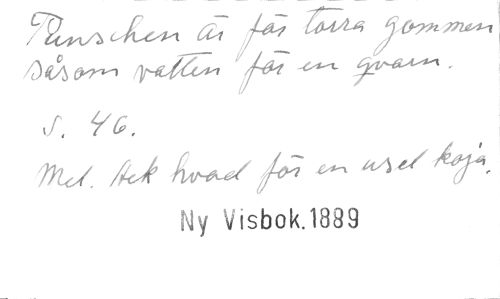 Punschen är för torra gommen
såsom vatten för en qvarn.
s. 46.
Mel. Ack hvad för en usel koja.
Ny Visbok.1889